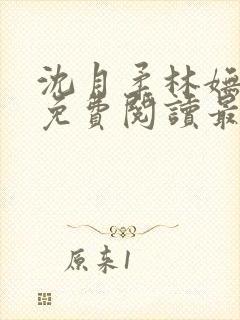 沈自柔林婳
免費閱讀最
原来1